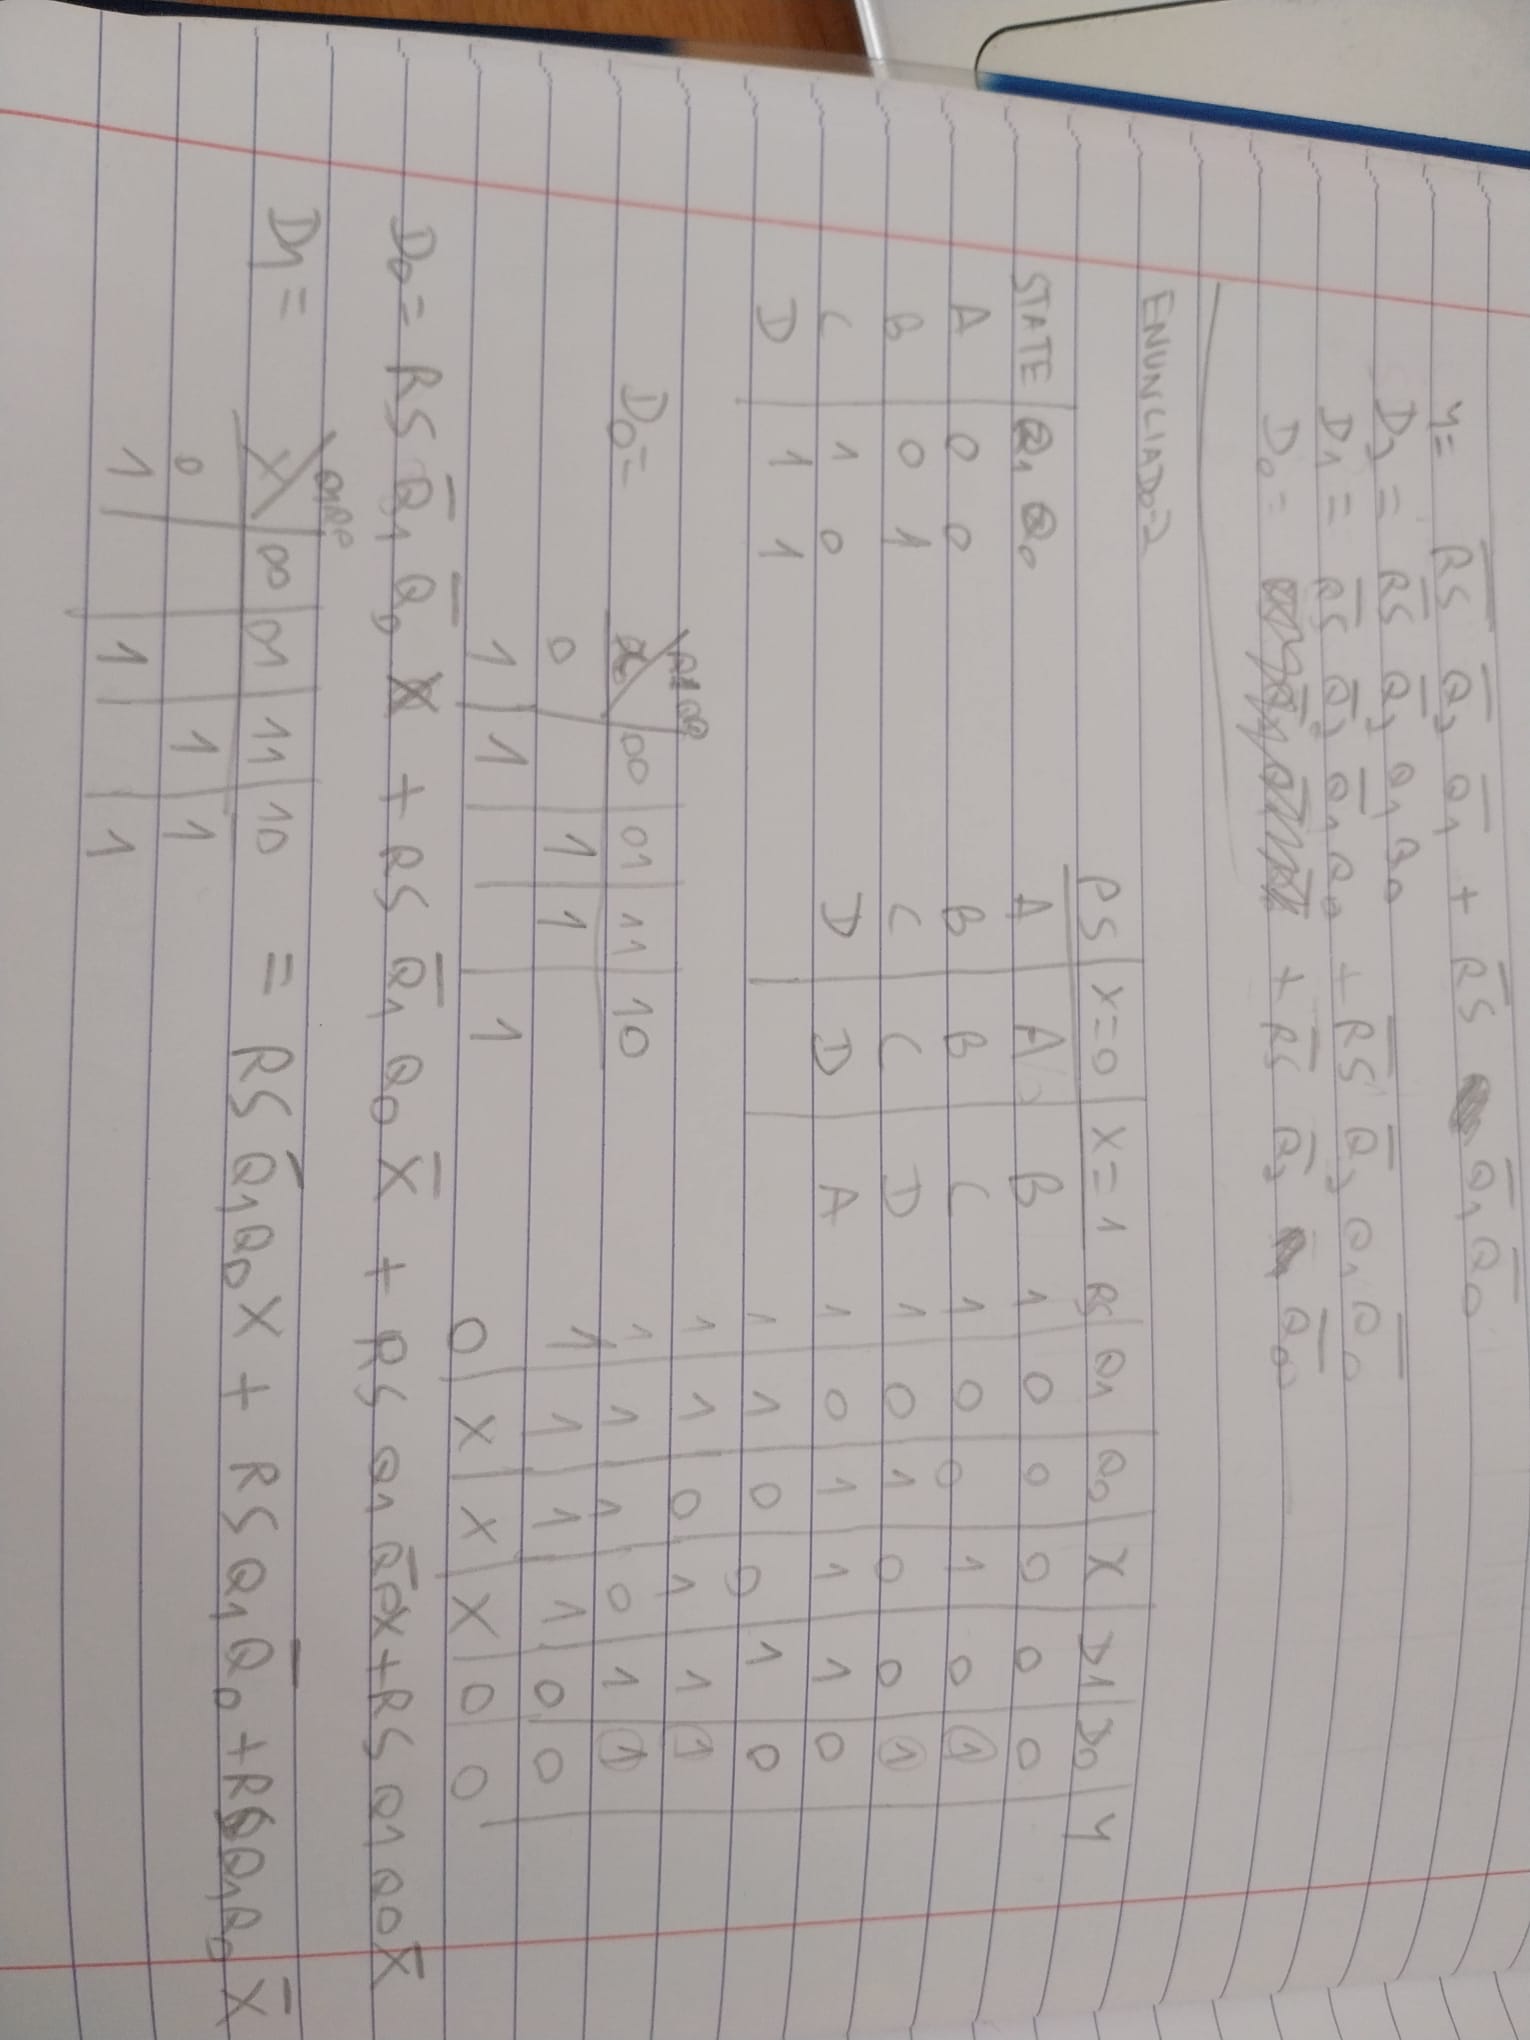 Y = R̅S̅ Q̅₂ Q̅₁ + R̅S̅ Q̅₁ Q̅₀
D₂ = R̅S̅ Q̅₂ Q₁ Q₀
D₁ = R̅S̅ Q̅₂ Q̅₁ Q₀ + R̅S̅ Q̅₂ Q₁ Q̅₀
D₀ = + R̅S̅ Q̅₂ Q̅₀
ENUNCIADO-2
STATE Q₁ Q₀
A 0 0
B 0 1
C 1 0
D 1 1
PS X=0 X=1
A A B
B B C
C C D
D D A
RS Q1 Q0 X D1 D0 Y
1 0 0 0 0 0
1 0 0 1 0 1
1 0 1 0 0 1
1 0 1 1 1 0
1 1 0 0 1 0
1 1 0 1 1 1
1 1 1 0 1 1
1 1 1 1 0 0
0 X X X 0 0
D₀ =
Q1 Q0
X 00 01 11 10
0 1 1
1 1 1
D₀ = RS Q̅₁ Q̅₀ X + RS Q̅₁ Q₀ X̅ + RS Q1 Q̅0 X + RS Q1 Q0 X̅
D₁ =
Q1Q0
X 00 01 11 10
0 1 1
1 1 1
= RS Q̅₁Q₀X + RS Q₁Q̅₀ + RSQ₁Q₀ X̅